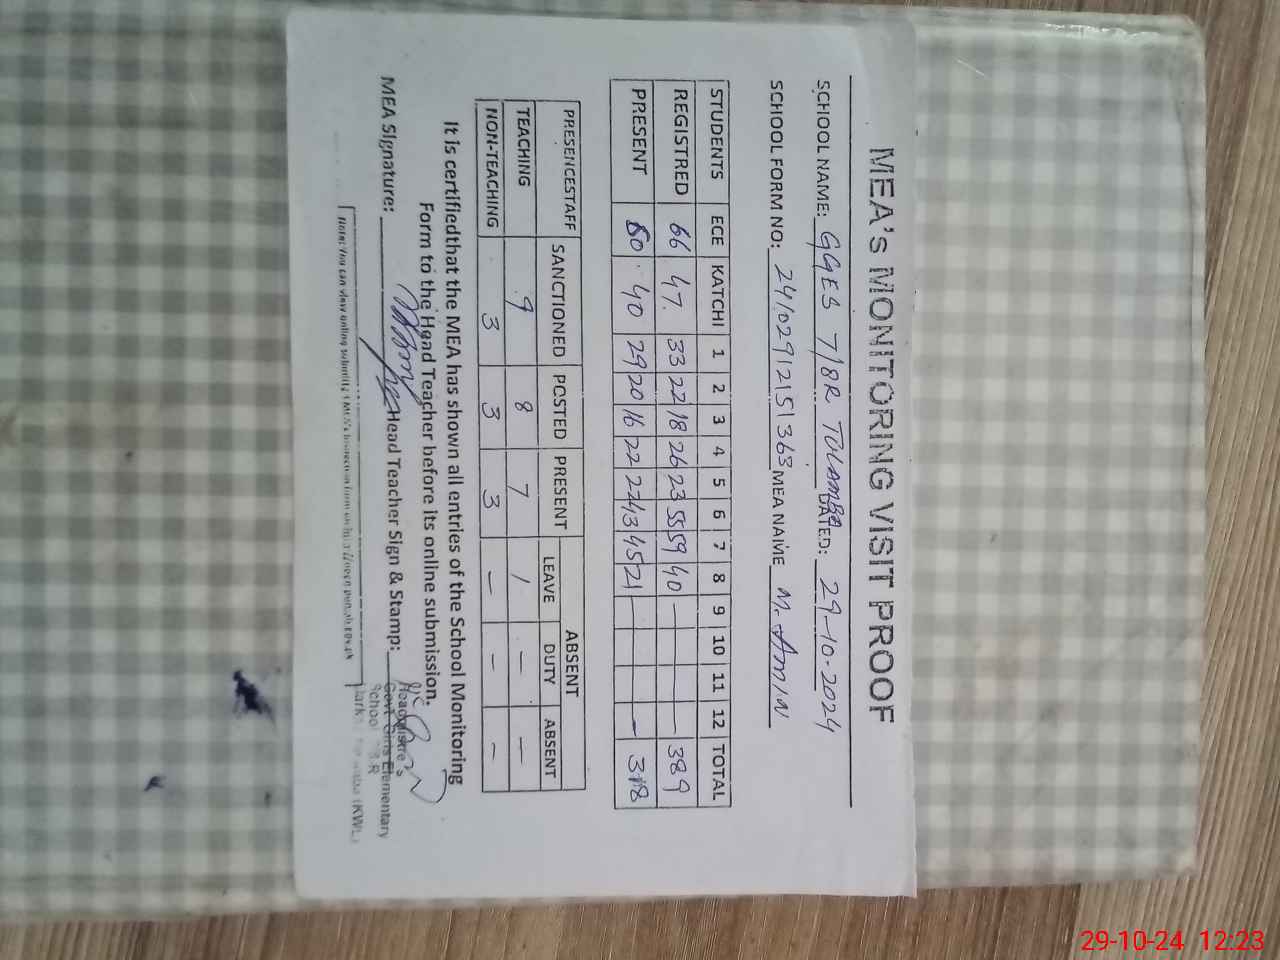 MEA's MONITORING VISIT PROOF
SCHOOL NAME: GGES 7/8R TULAMBA DATED: 29-10-2024
SCHOOL FORM NO: 24102912151363 MEA NAME M. Amin
STUDENTS ECE KATCHI 1 2 3 4 5 6 7 8 9 10 11 12 TOTAL
REGISTRED 66 47. 33 22 18 26 23 55 59 40 — — — — 389
PRESENT 60 40 29 20 16 22 22 43 45 21 — — 318
PRESENCESTAFF SANCTIONED POSTED PRESENT ABSENT
LEAVE DUTY ABSENT
TEACHING 9 8 7 1 — —
NON-TEACHING 3 3 3 — — —
It is certifiedthat the MEA has shown all entries of the School Monitoring
Form to the Head Teacher before its online submission.
MEA Signature: Head Teacher Sign & Stamp:
Govt Girls Elementary
School
Note: You can view online
29-10-24 12:23